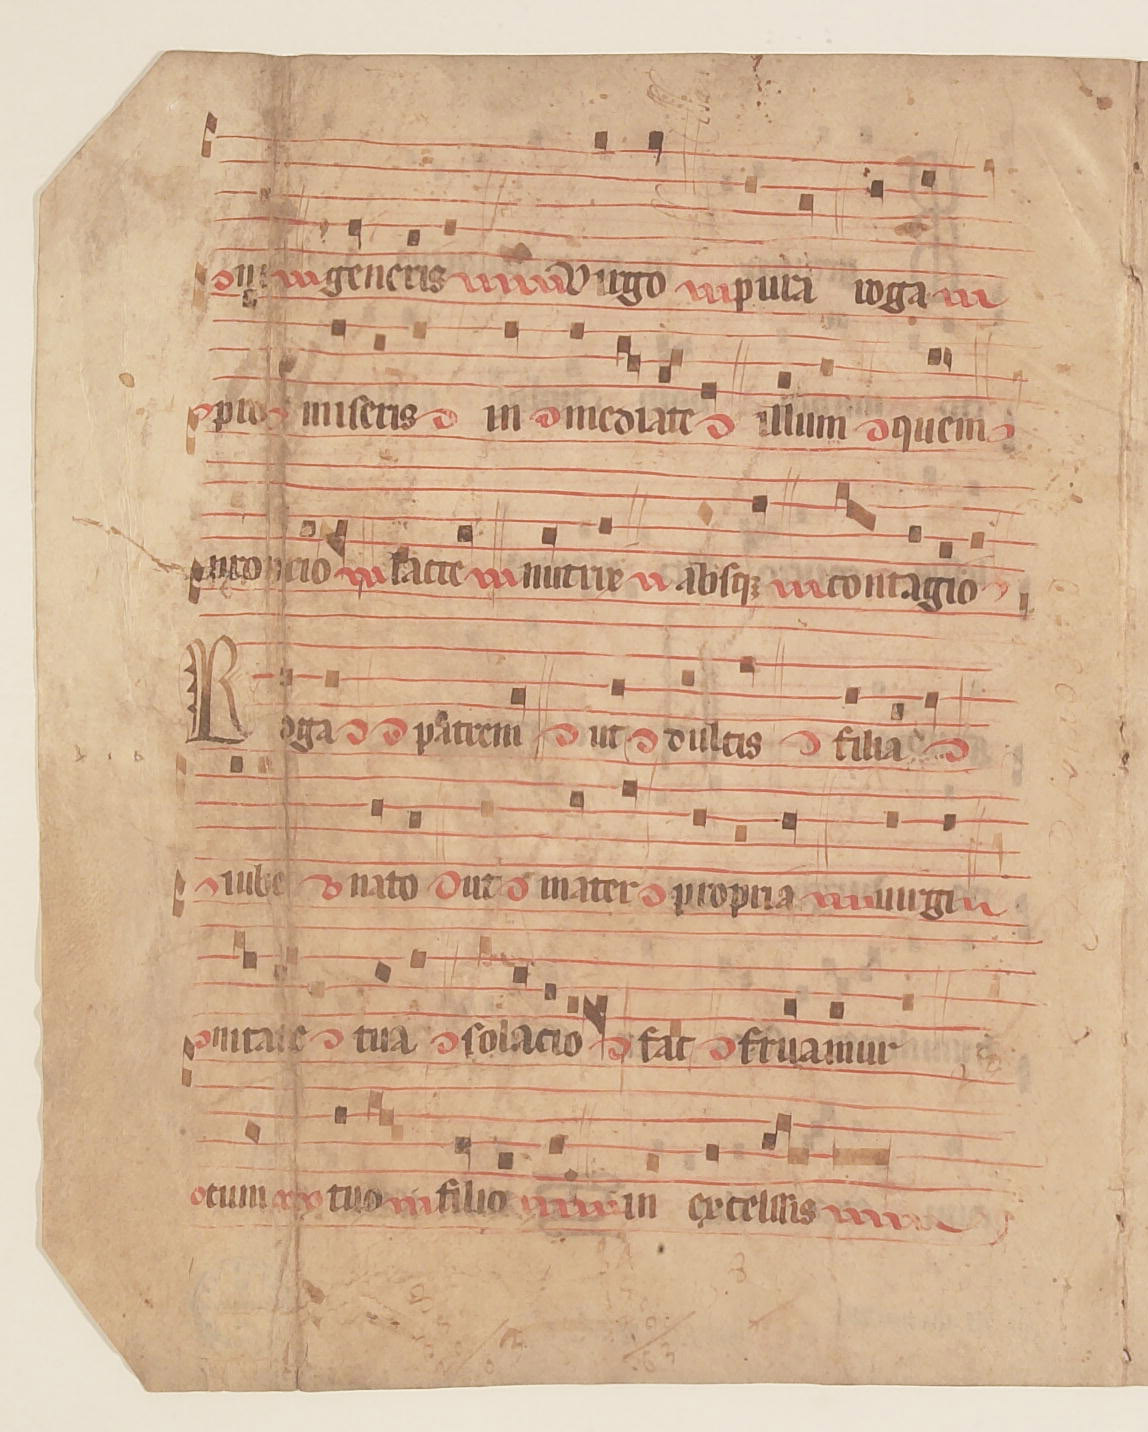 generis Virgo pura roga
pro miseris in mediate illum quem
lacte nutrire absq; contagio
Roga patrem ut dulcis filia
iube nato ut mater propria uirgi
nitate tua solacio fac fruamur
tuo filio in excelsis